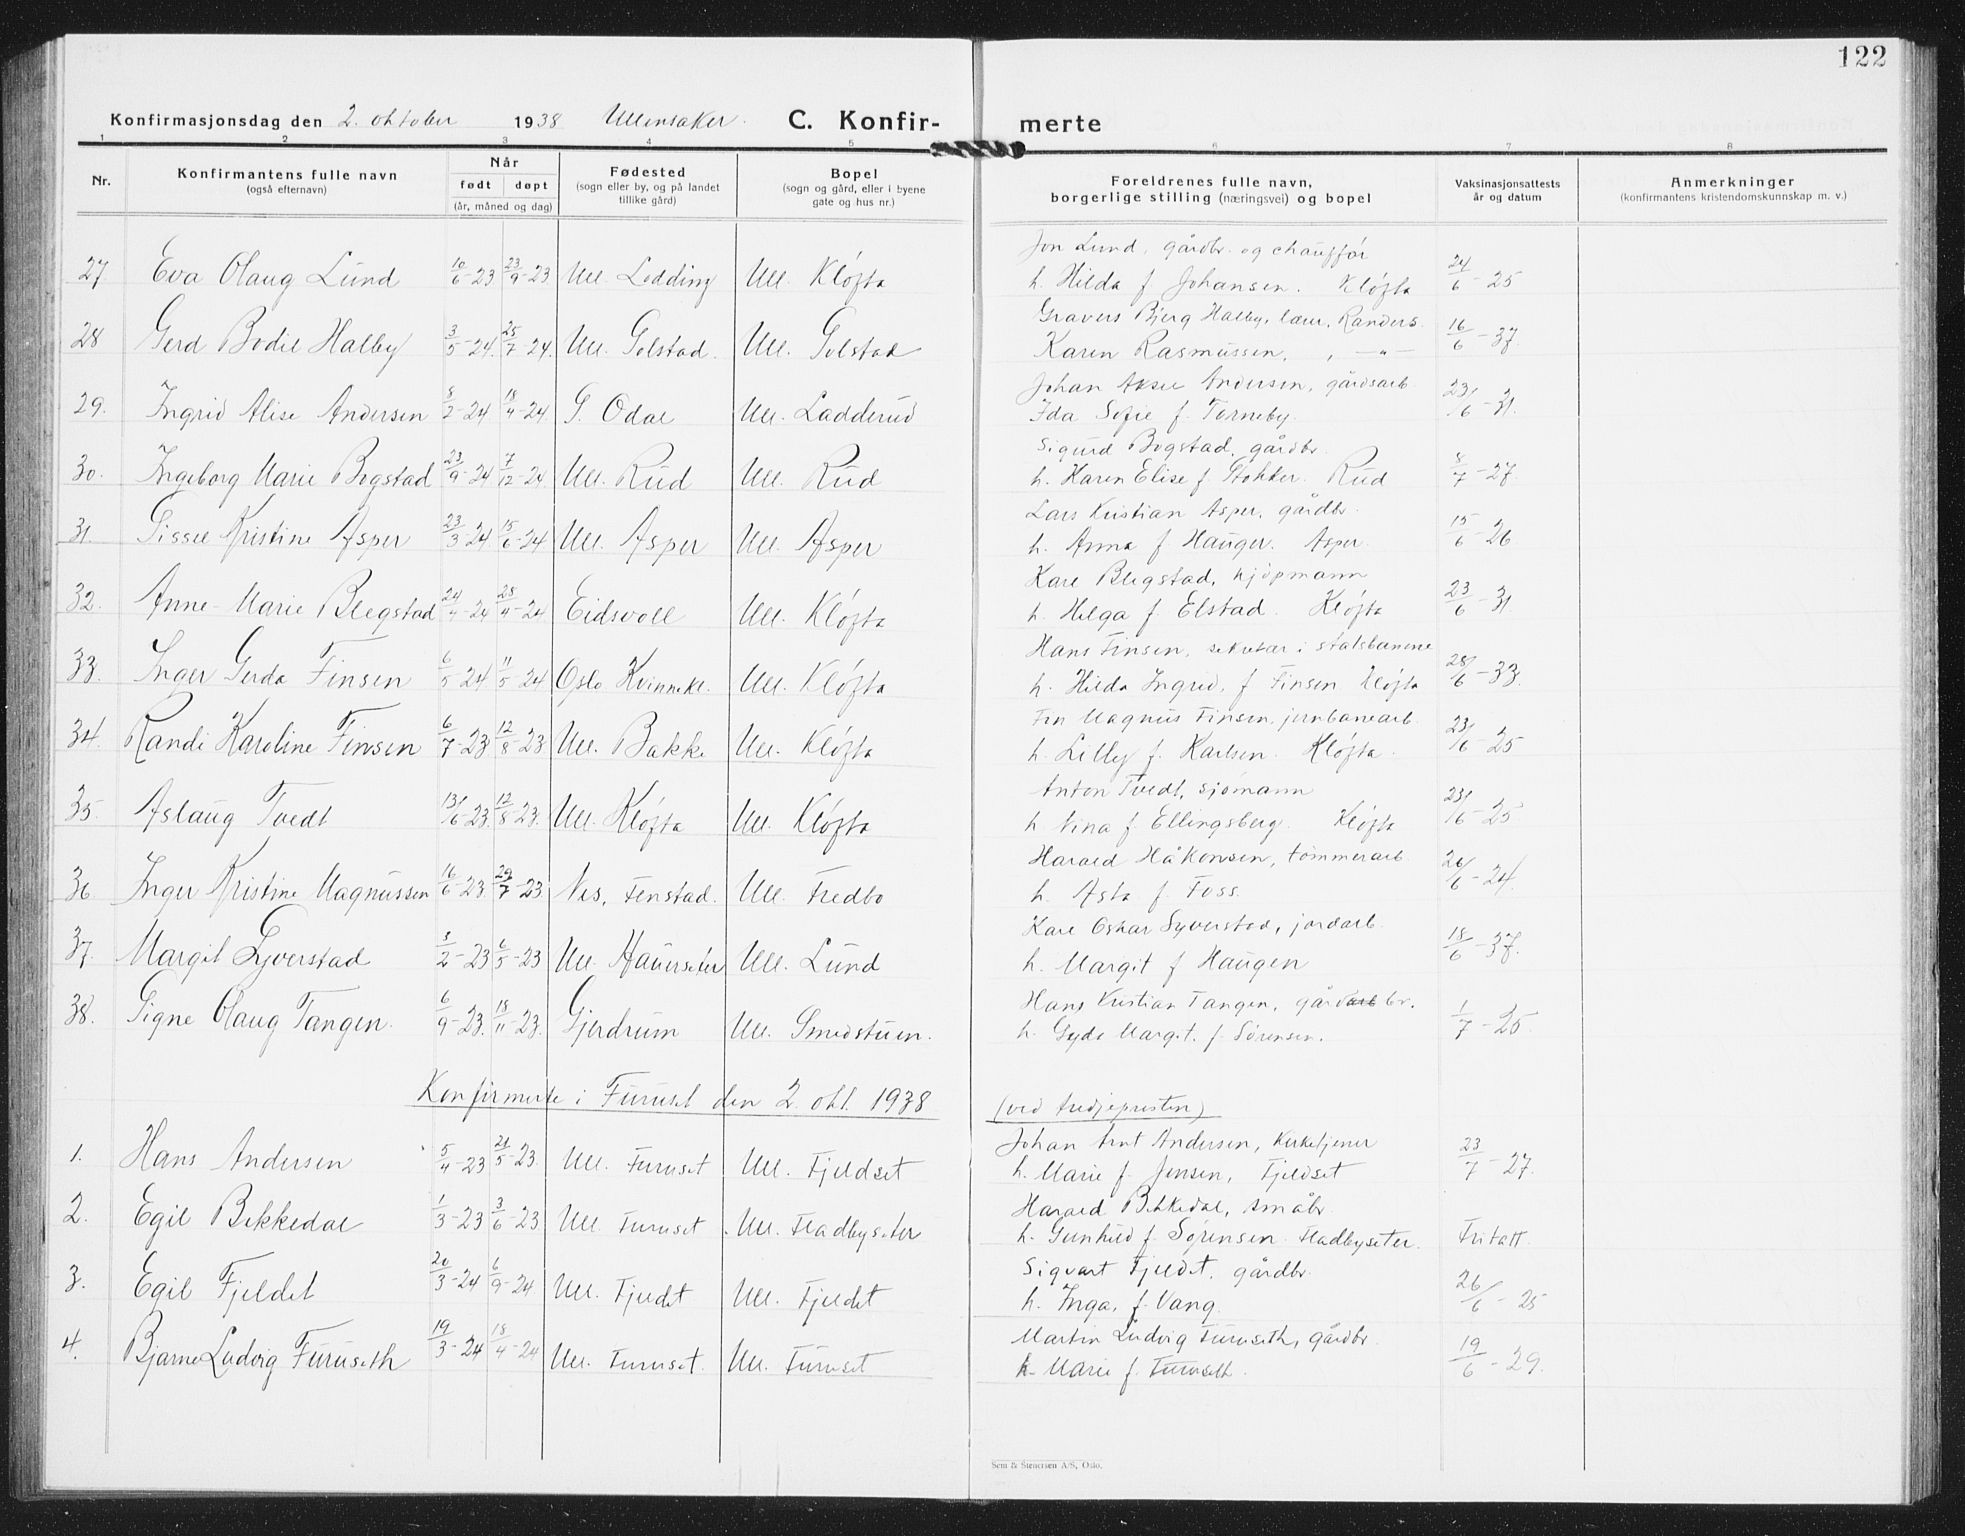 122
Konfirmasjonsdag den 2. oktober 1938 Ullensaker. C. Konfir- merte
1 2 3 4 5 6 7 8
Nr. Konfirmantens fulle navn (også efternavn) Når født døpt (år, måned og dag) Fødested (sogn eller by, og på landet tillike gård) Bopel (sogn og gård, eller i byene gate og hus nr.) Foreldrenes fulle navn, borgerlige stilling (næringsvei) og bopel Vaksinasjonsattests år og datum Anmerkninger (konfirmantens kristendomskunnskap m. v.)
Jon Lund, gårdbr. og chauffør
27. Eva Olaug Lund 10/6-23 23/9-23 Ull. Lodding Ull. Kløfta h. Hilda f. Johansen. Kløfta 24/6-25
Gravers Bjerg Halby, lær, Randers.
28 Gerd Bodil Halby 3/5-24. 25/7-24. Ull. Golstad. Ull. Golstad Karen Rasmussen, , -"- 16/6-37.
Johan Aksel Andersen, gårdsarb.
29. Ingrid Alise Andersen 8/2-24 18/4-24. S. Odal Ull. Ladderud Ida Sofie f. Torneby. 23/6-31.
Sigurd Bogstad, gårdbr.
30. Ingeborg Marie Bogstad 23/9-24 7/12-24 Ull. Rud Ull. Rud h. Karen Elise f. Stokker. Rud 8/7-27.
Lars Kristian Asper, gårdbr.
31. Sissel Kristine Asper 23/3-24. 15/6-24 Ull. Asper Ull. Asper h. Anna f. Hauger. Asper. 15/6-26
Kåre Blegstad, kjøpmann
32. Anne-Marie Blegstad 24/4-24 Eidsvoll Ull. Kløfta h. Helga f. Elstad. Kløfta 23/6-31
Hans Finsen, sekretær i statsbanene
33. Inger Gerda Finsen 6/5-24 11/5-24 Oslo Kvinnekl. Ull. Kløfta h. Hilda Ingrid, f. Finsen Kløfta 28/6-33.
Fin Magnus Finsen, jernbanearb.
34. Randi Karoline Finsen 6/7-23 12/8-23 Ull. Bakke Ull. Kløfta h. Lilly f. Karlsen. Kløfta. 23/6-25
Anton Tvedt, sjømann
35. Aslaug Tvedt 13/6-23. 12/8-23. Ull. Kløfta Ull. Kløfta h. Nina f. Ellingsberg. Kløfta 23/6-25
Harald Håkonsen, tømmerarb.
36 Inger Kristine Magnussen 16/6-23. 29/7-23 Nes, Fenstad. Ull. Fredbo h. Asta f. Foss. 26/6-24.
Karl Oskar Syverstad, jordarb.
37. Margit Syverstad 3/2-23 6/5-23 Ull. Hauerseter Ull. Lund h. Margit f. Haugen 18/6-37.
Hans Kristian Tangen, gårdarb br.
38. Signe Olaug Tangen. 6/9-23. 18/11-23. Gjerdrum Ull. Smedstuen. h. Gyda Margit. f. Sørensen. 1/7-25.
Konfirmerte i Furuset den 2. okt. 1938 (ved tredjepresten)
Johan Arnt Andersen, kirketjener
1. Hans Andersen 5/4-23 21/5-23. Ull. Furuset Ull. Fjeldset h. Marie f. Jensen, Fjeldset 23/7-27.
Harald Bekkedal, småbr.
2. Egil Bekkedal 1/3-23 3/6-23 Ull. Furuset Ull. Fladbyseter h. Gunhild f. Sørensen. Fladbyseter. Fritatt.
Sigvart Fjeldet, gårdbr.
3. Egil Fjeldet 20/3-24 6/9-24 Ull. Fjeldet Ull. Fjeldet h. Inga, f. Vang. 26/6-25
Martin Ludvig Furuseth, gårdbr.
4. Bjarne Ludvig Furuseth 19/3-24 18/4-24 Ull. Furuset. Ull. Furuset h. Marie f. Furuseth. 19/6-29.
Sem & Stenersen A/S, Oslo.